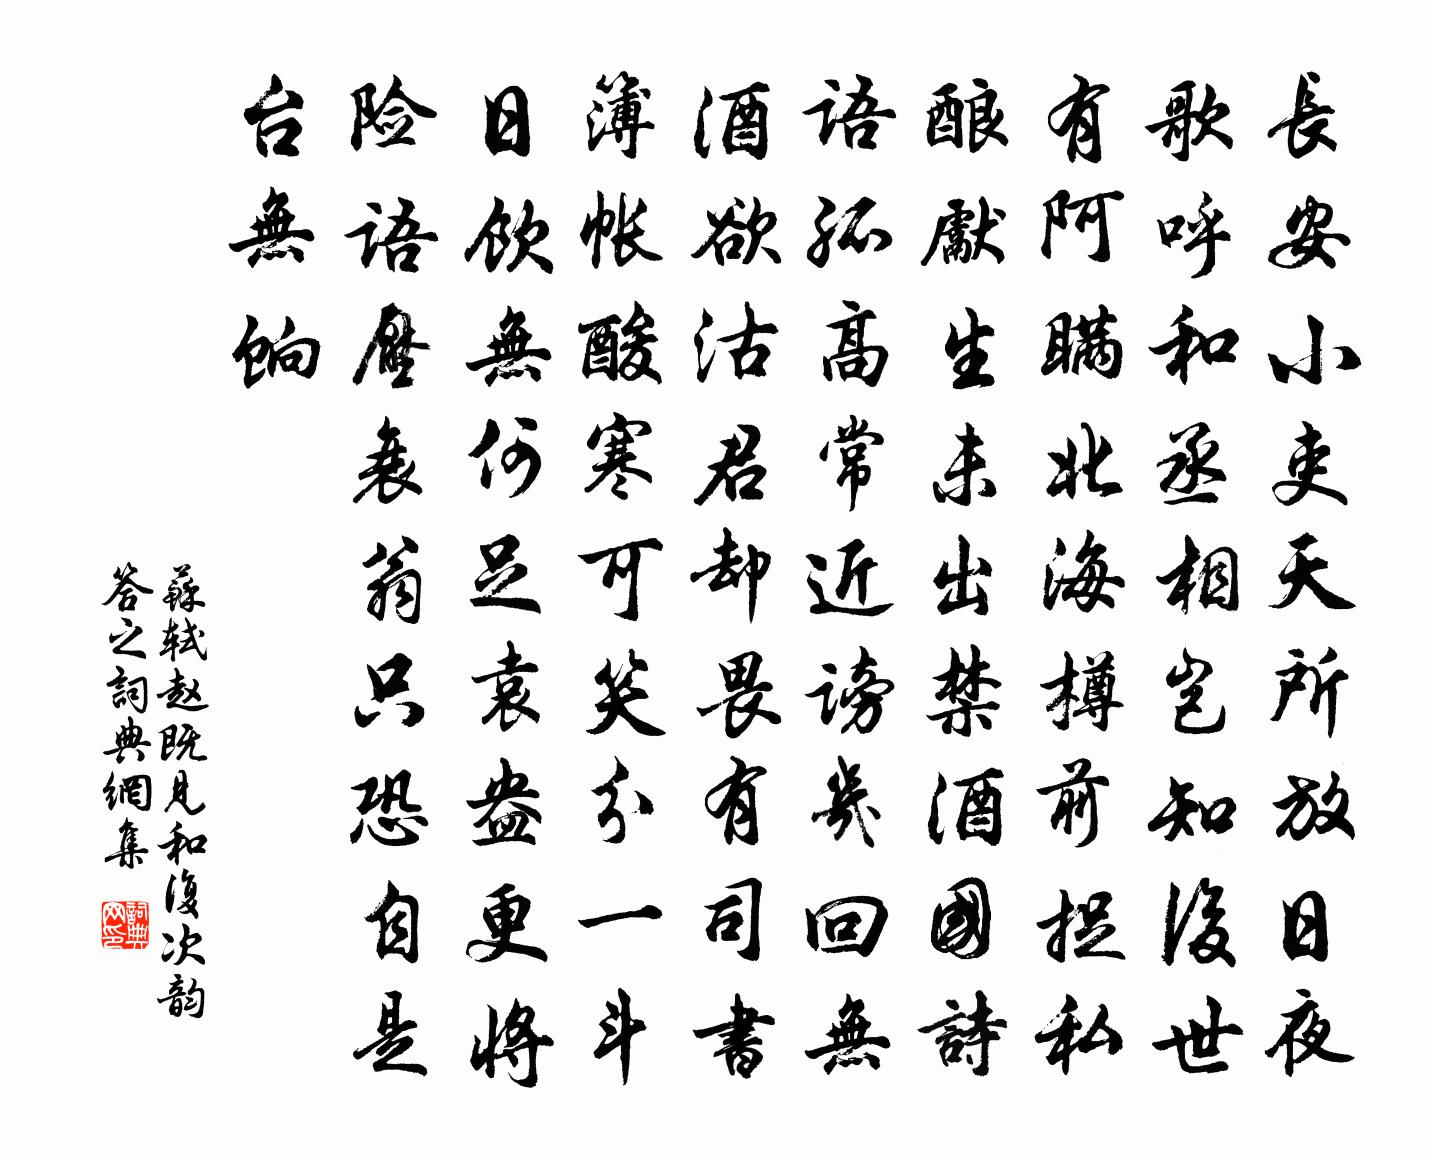 長安小吏天所放日夜
歌呼和丞相岂知後世
有阿瞒北海樽前捉私
酿獻生未出禁酒國詩
语孤高常近谤幾回無
酒欲沽君却畏有司書
簿帐酸寒可笑分一斗
日饮無何足袁盎更将
险语壓衰翁只恐自是
台無饷
蘇轼赵既見和復次韵
答之詞典網集
詞典网印